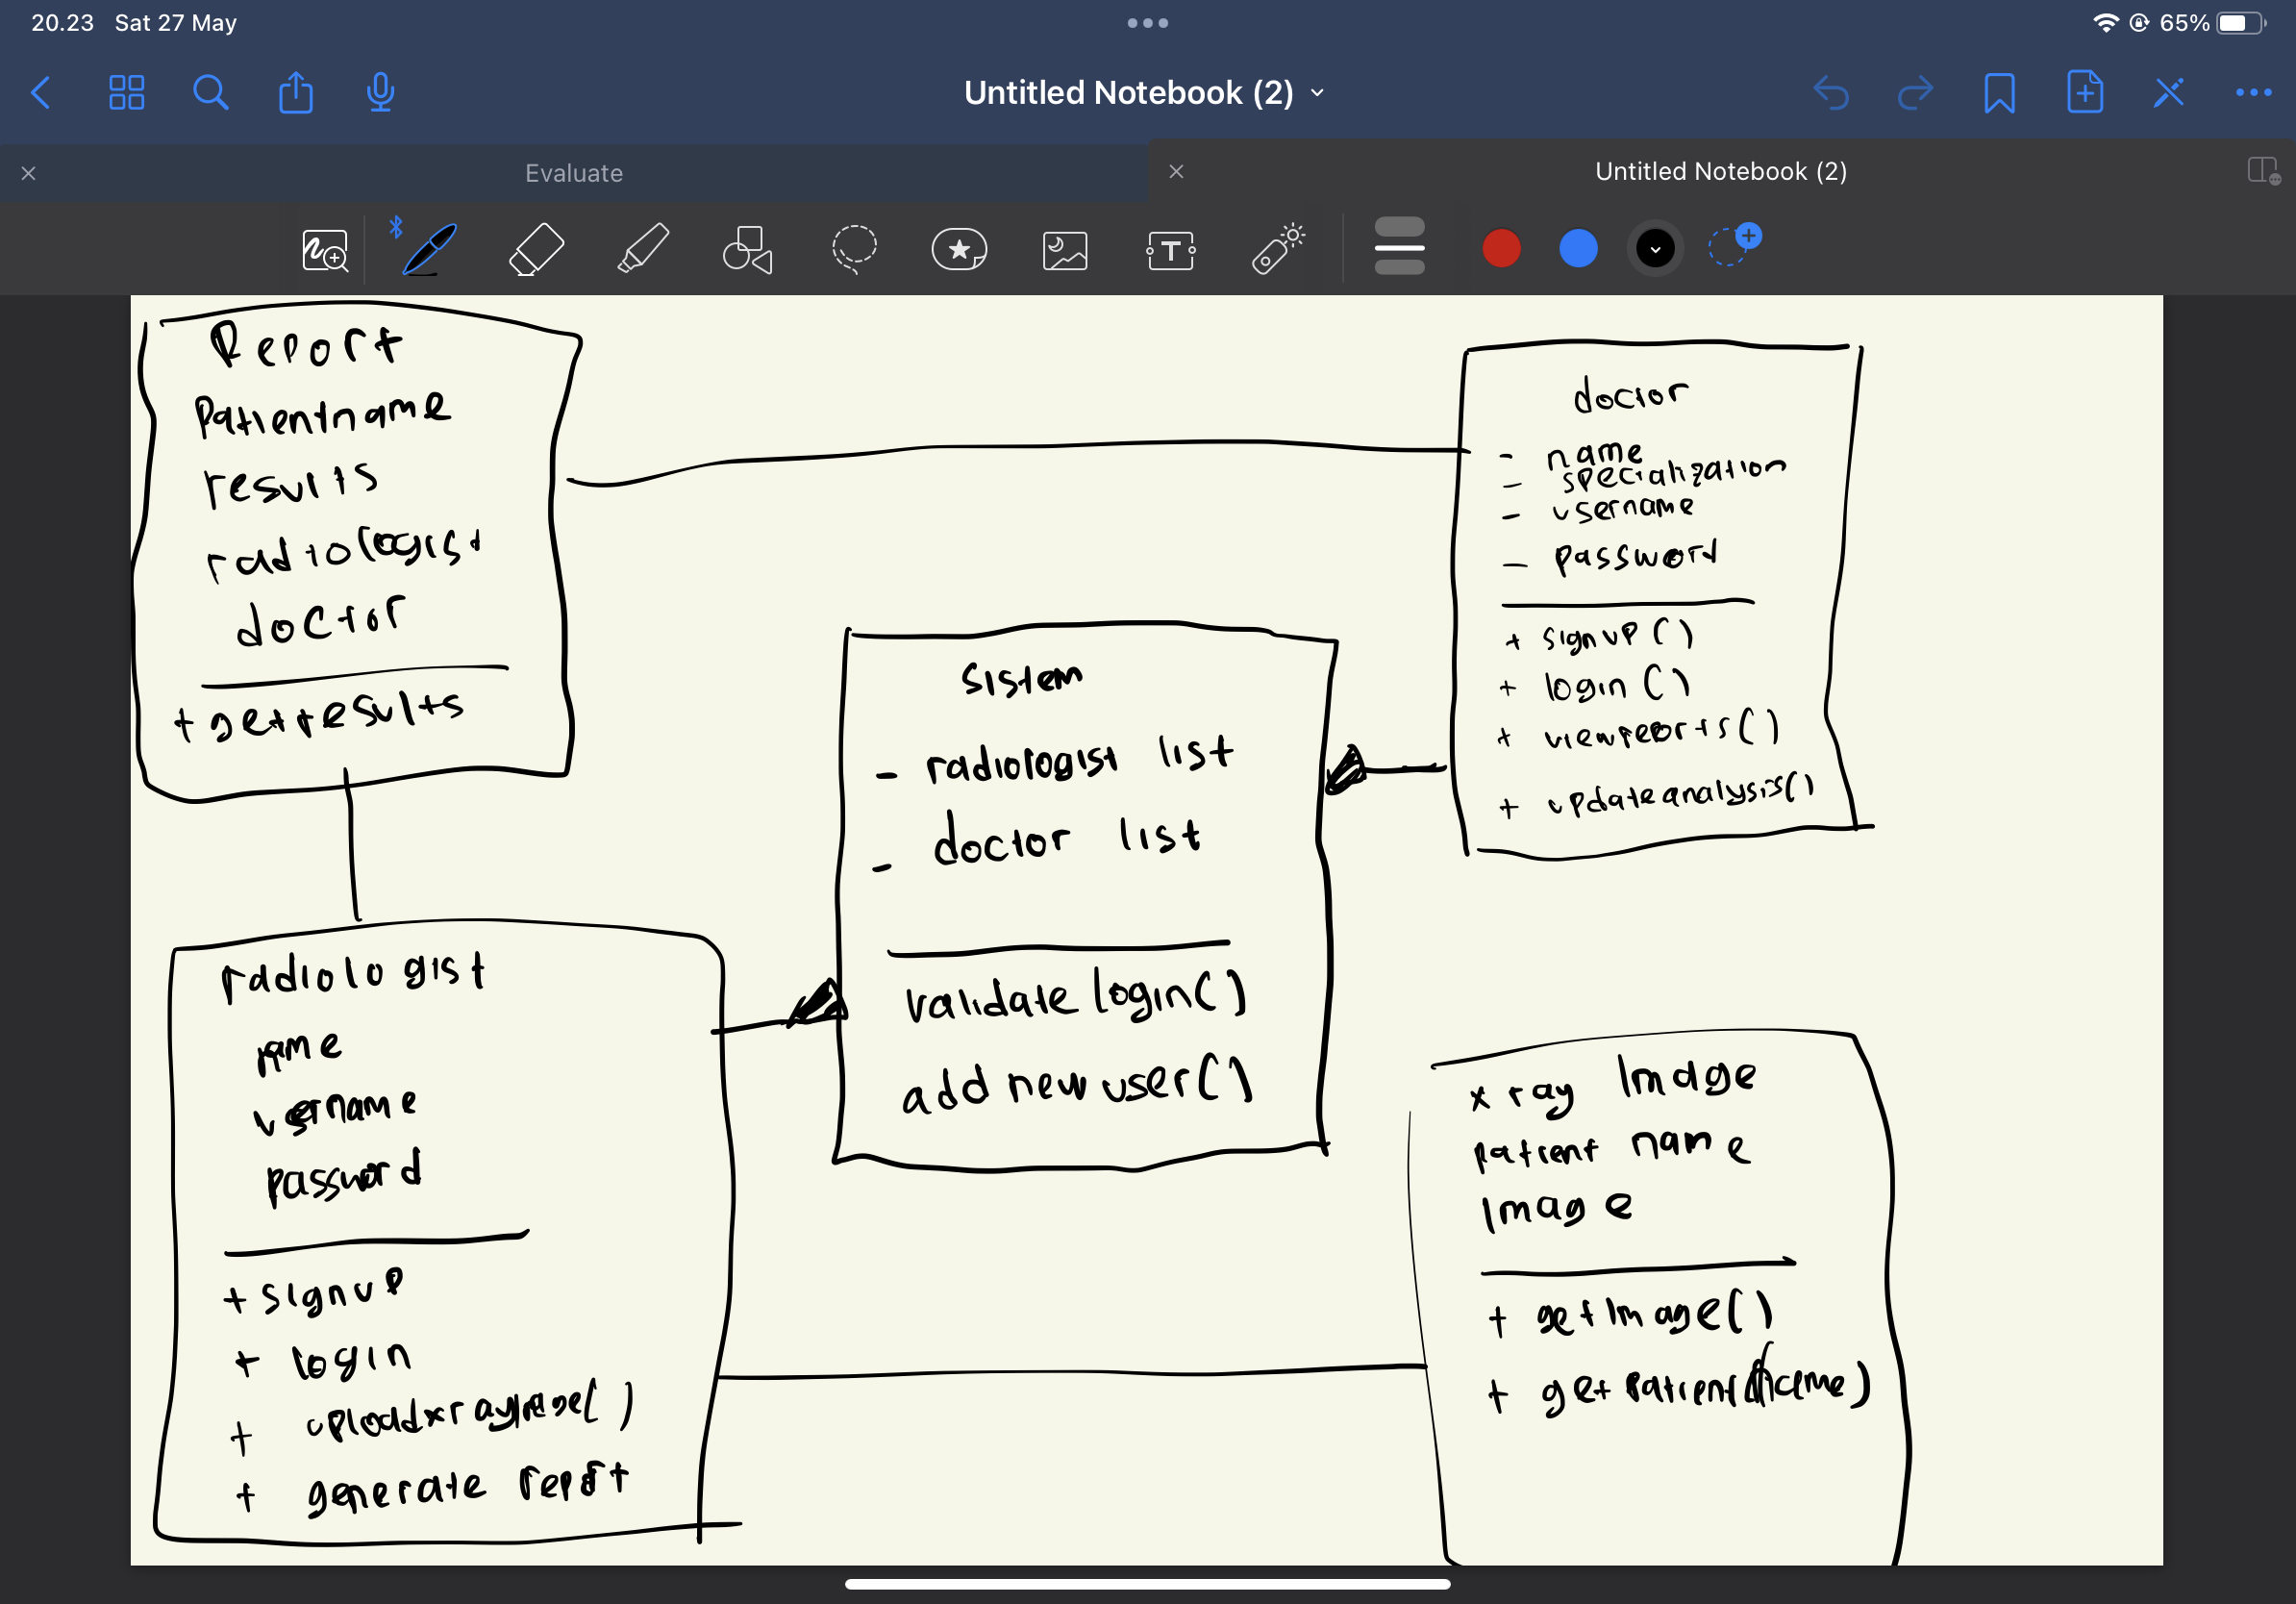 20.23 Sat 27 May
65%
Untitled Notebook (2)
Evaluate
Untitled Notebook (2)
Report
Patientname
results
radiologist
doctor
+ getresults
doctor
- name
- specialization
- username
- password
+ signup ()
+ login ()
+ viewreports()
+ updateanalysis()
sistem
- radiologist list
- doctor list
validate login()
add new user()
radiologist
name
username
password
+ signup
+ login
+ uploadxrayimage()
+ generate report
x ray Image
patient name
Image
+ getImage()
+ getPatient(Name)